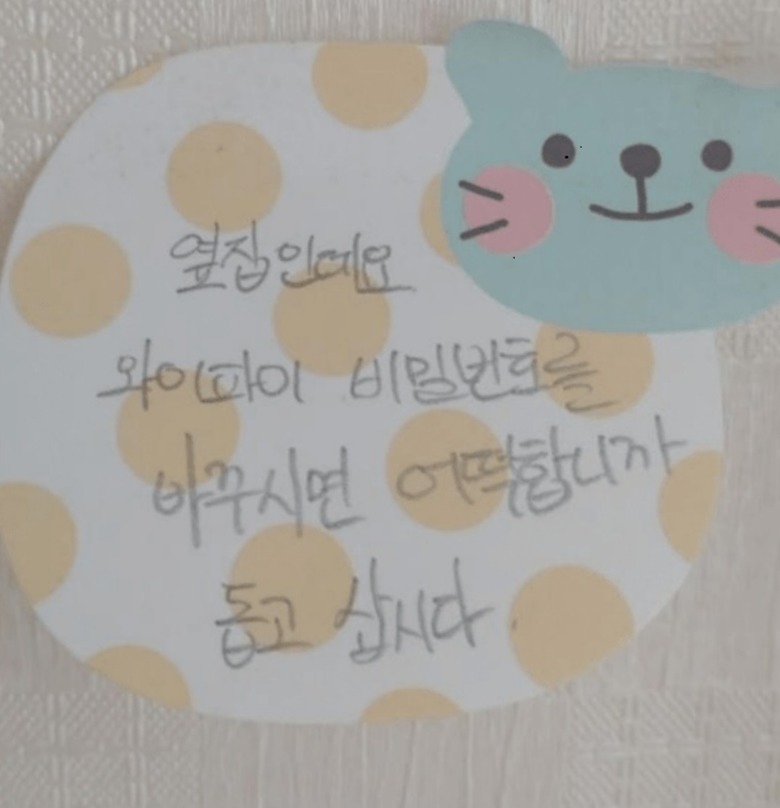 옆집인데요
와이파이 비밀번호를
바꾸시면 어떡합니까
돕고 삽시다